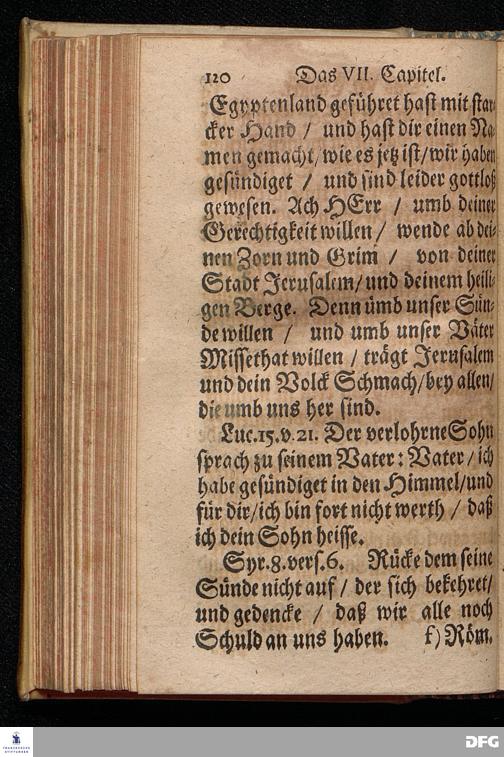 120 Das VII. Capitel.
Egyptenland geführet hast mit star
cker Hand / und hast dir einen Na-
men gemacht / wie es jetz ist / wir haben
gesündiget / und sind leider gottloß
gewesen. Ach HErr / umb deiner
Gerechtigkeit willen / wende ab dei-
nen Zorn und Grim / von deiner
Stadt Jerusalem / und deinem heili-
gen Berge. Denn ümb unser Sün-
de willen / und umb unser Väter
Missethat willen / trägt Jerusalem
und dein Volck Schmach / bey allen /
die umb uns her sind.
Luc. 15. v. 21. Der verlohrne Sohn
sprach zu seinem Vater: Vater / ich
habe gesündiget in den Himmel / und
für dir / ich bin fort nicht werth / daß
ich dein Sohn heisse.
Syr. 8. vers. 6. Rücke dem seine
Sünde nicht auf / der sich bekehret /
und gedencke / daß wir alle noch
Schuld an uns haben. f) Röm.
FRANCKESCHE
STIFTUNGEN
DFG